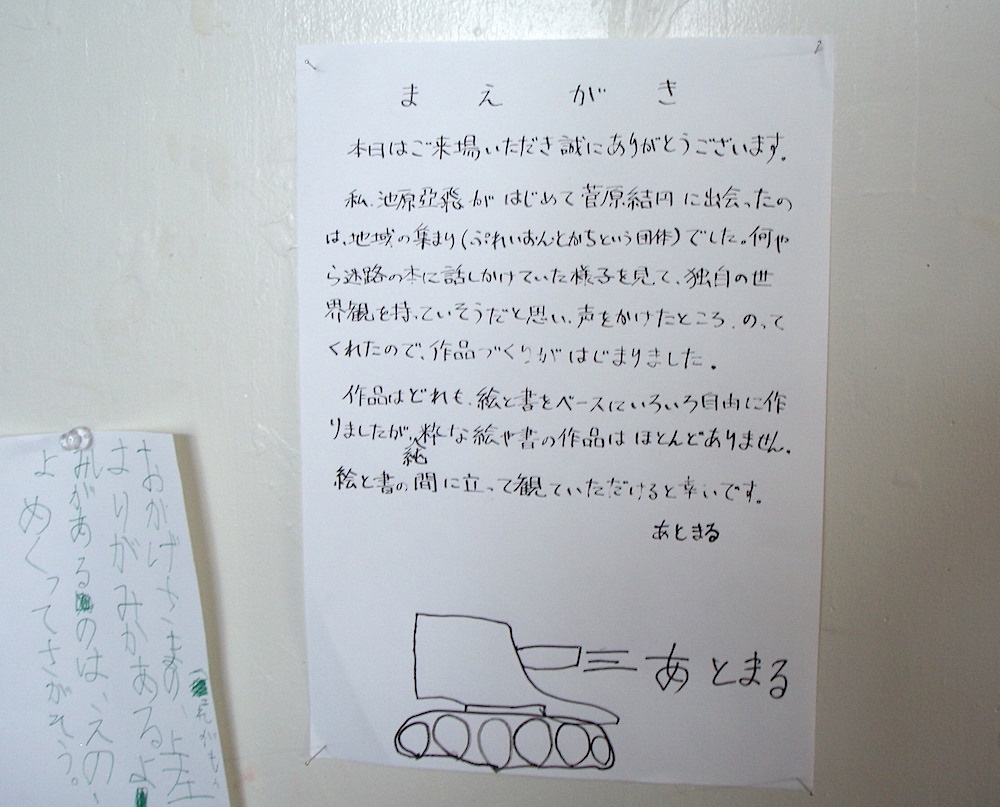 まえがき
本日はご来場いただき誠にありがとうございます。
私、池原亞飛がはじめて菅原結円に出会ったの
は、地域の集まり(ぷれいおんとかちという団体)でした。何や
ら迷路の本に話しかけていた様子を見て、独自の世
界観を持っていそうだと思い、声をかけたところ、のって
くれたので、作品づくりがはじまりました。
作品はどれも、絵と書をベースにいろいろ自由に作
りましたが、純粋な絵や書の作品はほとんどありません。
絵と書の間に立って観ていただけると幸いです。
あとまる
あとまる
はりがみがあるよ
があるのは、えの、
よめくってさがそう。